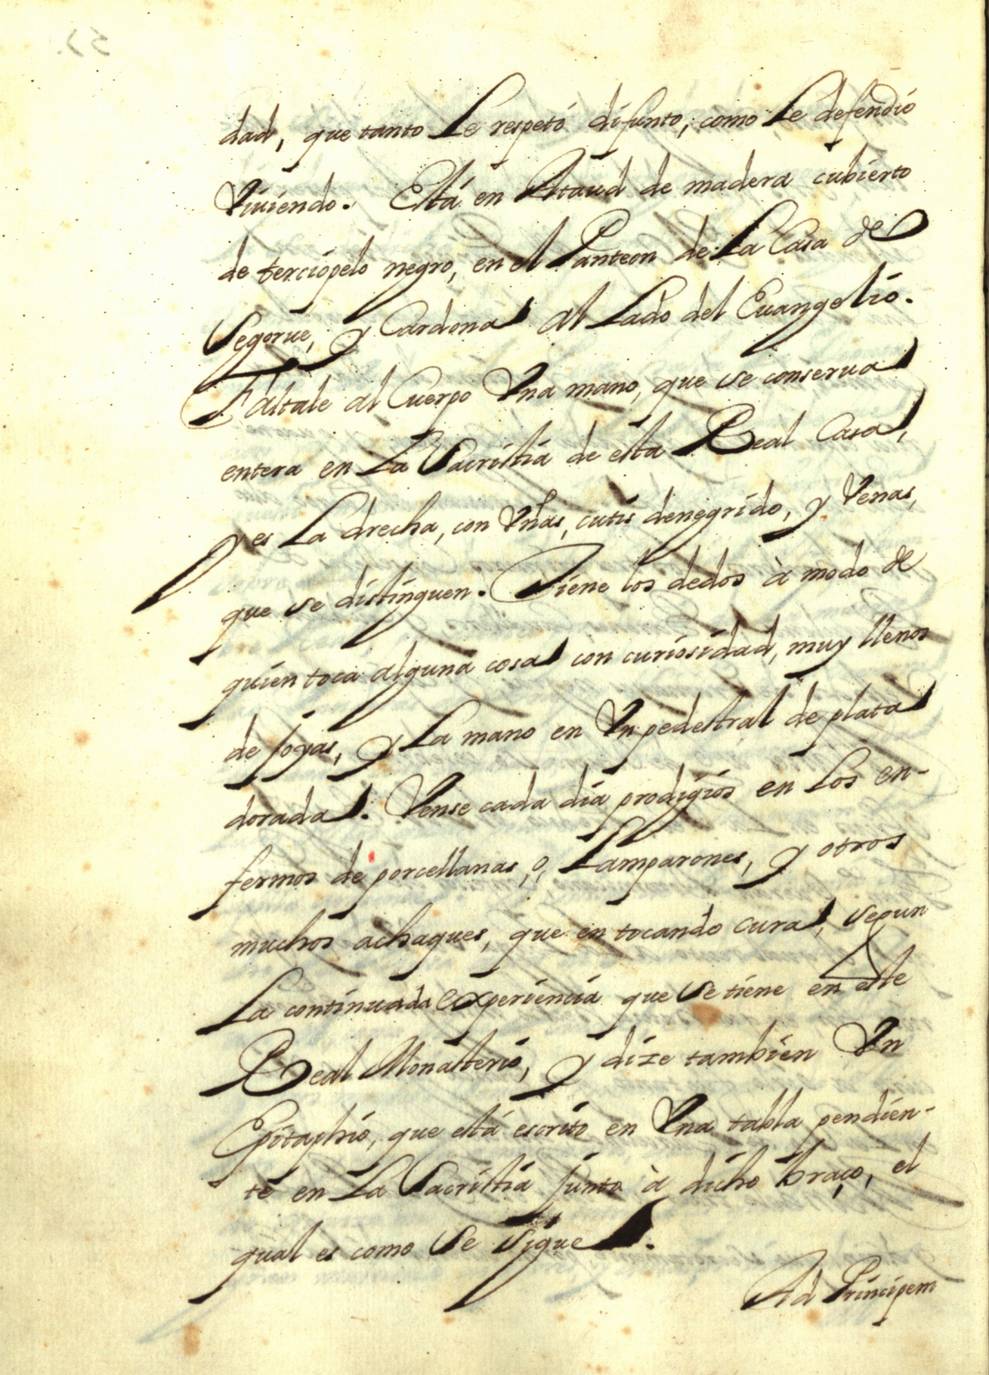 dad, que tanto Le respetó difunto, como Le defendió
Viviendo. Està en Ataud de madera cubierto
de terciopelo negro, en el Panteon de La Casa de
Segorve, y Cardona al Lado del Euangelio.
Faltale al Cuerpo Vna mano, que se conserua
entera en La Sacristia de esta Real Casa,
y es La drecha, con Vñas, cutis denegrido, y Venas,
que se distinguen. Tiene los dedos à modo de
quien toca alguna cosa con curiosidad, muy llenos
de joyas, y La mano en Vn pedestral de plata
dorada. Vense cada dia prodigios en Los en-
fermos de porcellanas, o, Lamparones, y otros
muchos achaques, que en tocando cura, segun
La continuada experiencia que se tiene en este
Real Monasterio, y dize tambien Vn
Epitaphio, que està escrito en Vna tabla pendien-
te en La Sacristia junto à dicho braço, el
qual es como se sigue.
Ad Principem